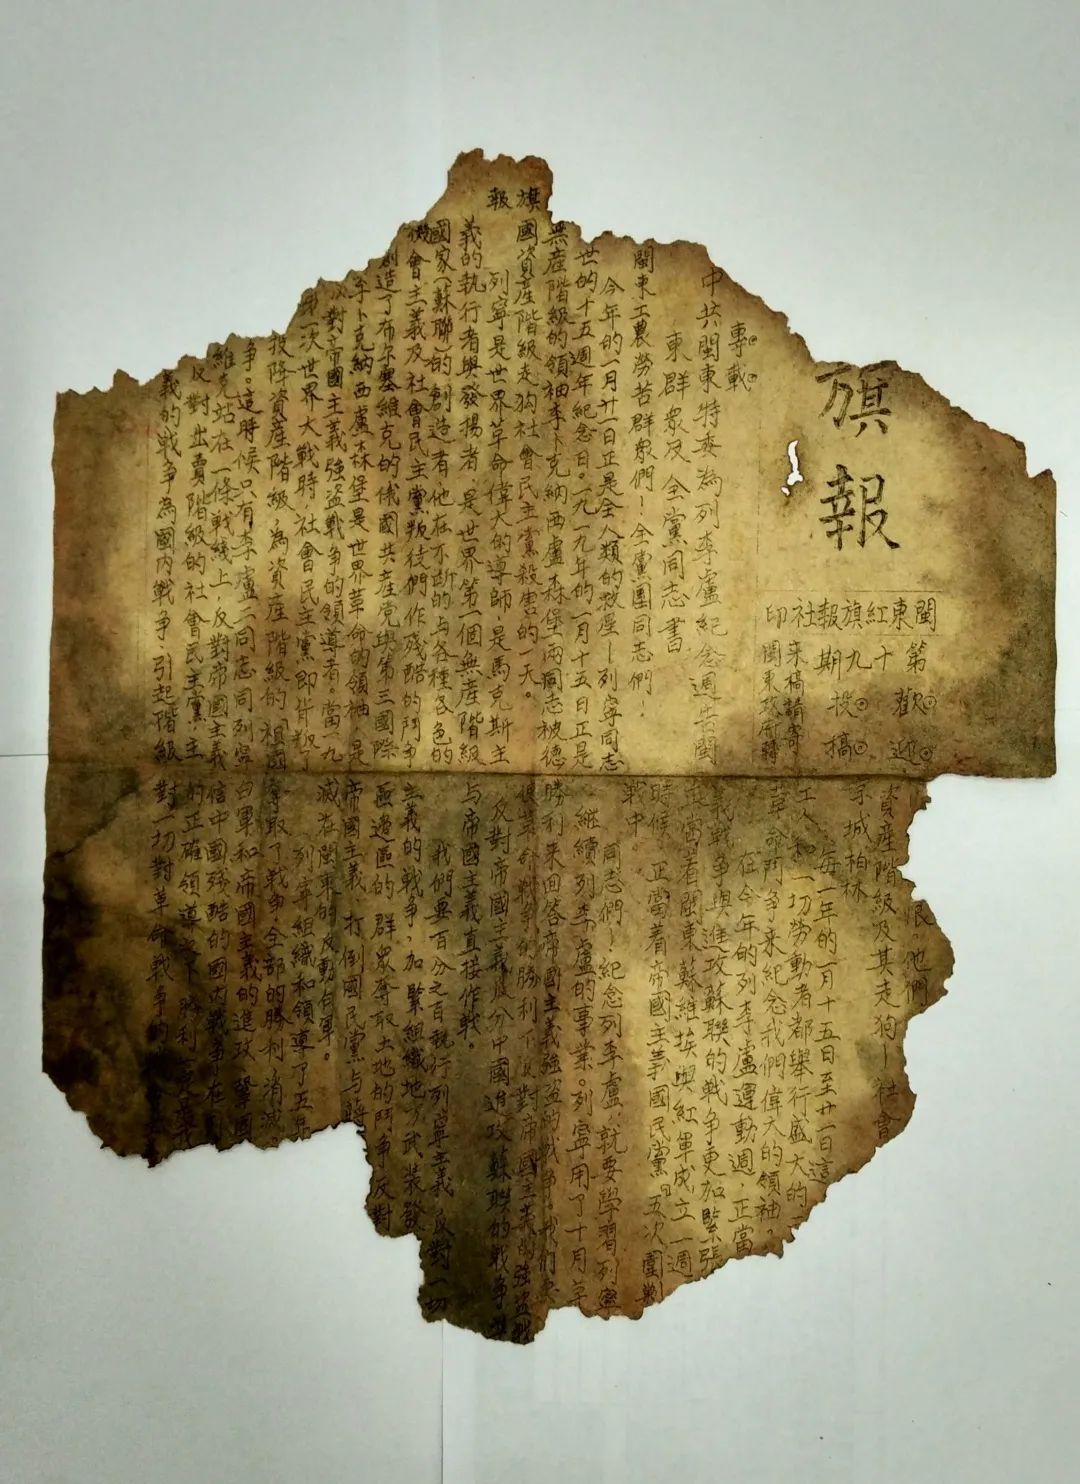 旗報
旗報
閩東紅旗報社印
第十九期
歡迎投稿
來稿請寄
閩東政府轉
專載
中共閩東特委為列李盧紀念週告閩
東群眾及全黨同志書
閩東工農勞苦群眾們！全黨團同志們！
今年的一月廿一日正是全人類的救星——列寧同志
世的十五週年紀念日。一九一九年的一月十五日正是
無產階級的領袖李卜克納西盧森堡兩同志被德
國資產階級走狗社會民主黨殺害的一天。
列寧是世界革命偉大的導師，是馬克斯主
義的執行者與發揚者，是世界第一個無產階級
國家（蘇聯）的創造者，他在不斷的與各種各色的
機會主義及社會民主黨叛徒們作殘酷的鬥爭
創造了布尔塞維克的俄國共產党與第三國際
李卜克納西盧森堡是世界革命的領袖，是
反對帝國主義強盜戰爭的領導者。當一九
第一次世界大戰時，社會民主黨即背叛了
投降資產階級，為資產階級的祖國
爭。這時候只有李盧二同志同列寧
維克站在一條戰綫上，反對帝國主義
反對出賣階級的社會民主黨，主
義的戰爭為國內戰爭，引起階級
恨他們
資產階級及其走狗——社會
京城柏林
每一年的一月十五日至廿一日這
工人和一切勞動者都舉行盛大的
革命鬥爭來紀念我們偉大的領袖。
在今年的列李盧運動週，正當
義戰爭與進攻蘇聯的戰爭更加緊張
當着閩東蘇維埃與紅軍成立一週
時候，正當着帝國主義國民黨「五次圍剿
戰中。
同志們！紀念列李盧，就要學習列寧
繼續列李盧的事業。列寧用了十月革
勝利來回答帝國主義強盜的戰爭。我們要
很革命戰爭的勝利，反對帝國主義的強盜戰
反對帝國主義瓜分中國進攻蘇聯的戰爭，準
与帝國主義直接作戰。
我們要百分之百執行列寧主義，反對一切
主義的戰爭，加緊組織地方武装，發
區邊區的群眾奪取土地的鬥爭，反對
帝國主義，打倒國民黨与蔣
滅在閩東的反動白軍。
列寧組織和領導了五
爭取了戰爭全部的勝利，消滅
白軍和帝國主義的進攻，鞏固
信中國殘酷的國內戰爭在
的正確領導之下勝利
對一切對革命戰爭的